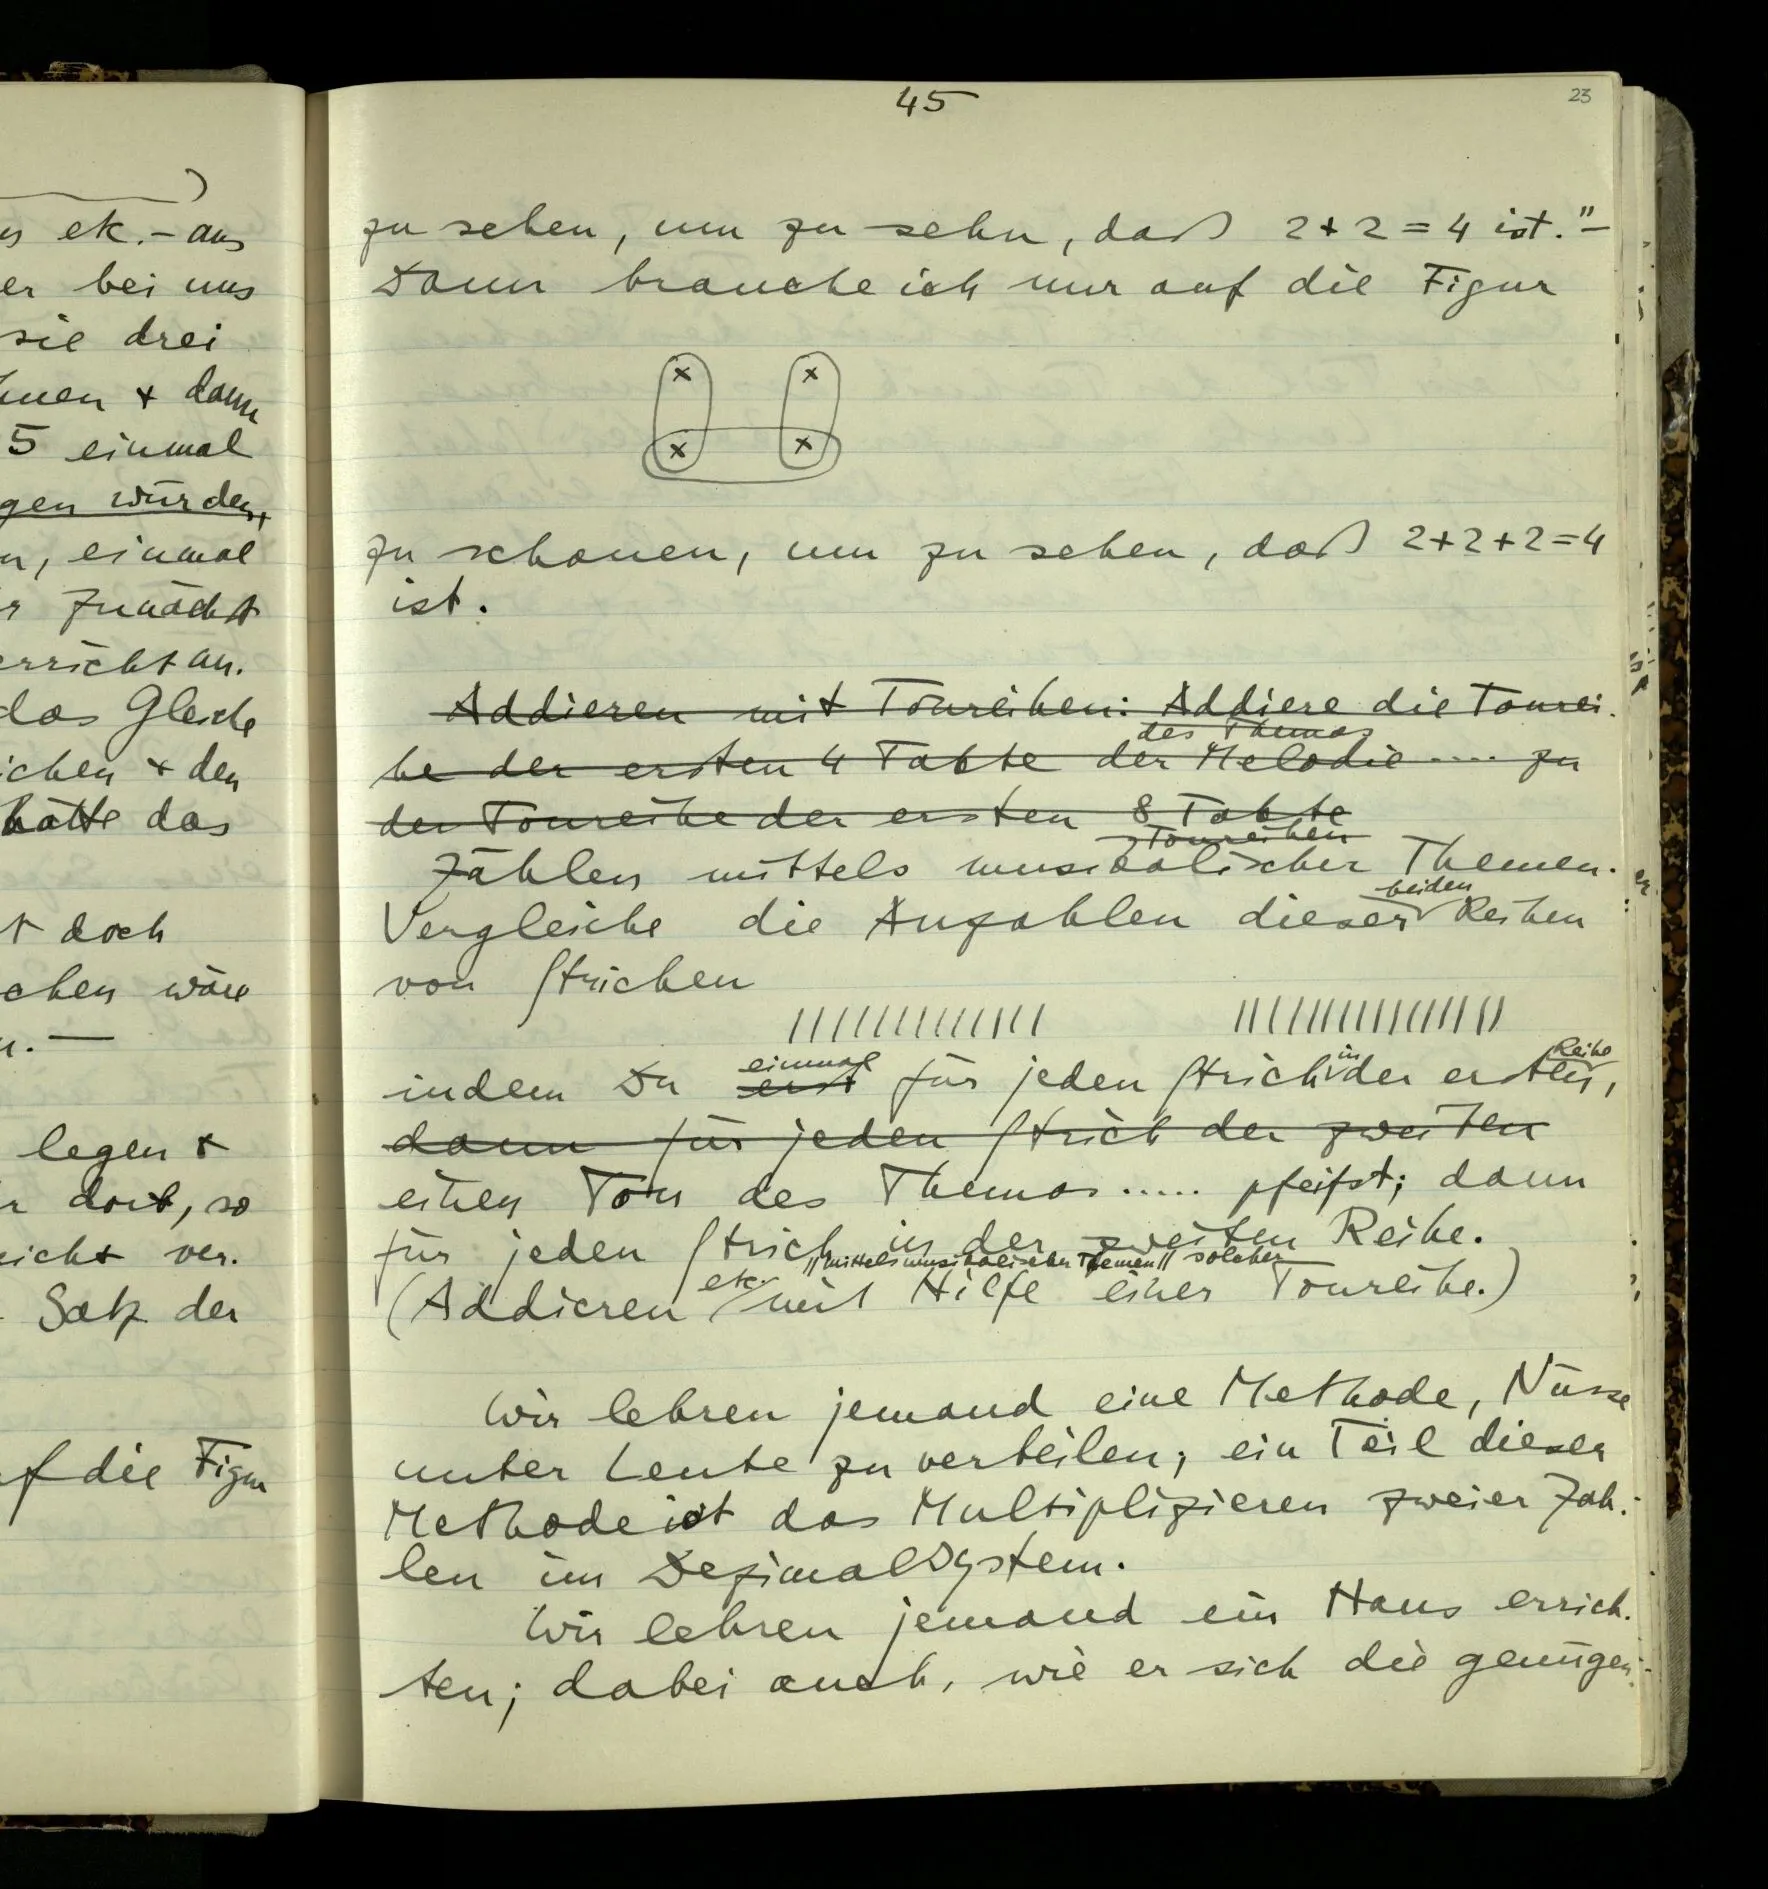 45
23
us etc. – aus
er bei uns
sie drei
hmen + dann
5 einmal
gen würden,
n, einmal
r zunächst
erricht an.
das Gleiche
ichen + den
hätte das
t doch
chen wäre
n. —
legen +
r dort, so
nicht ver-
Satz der
f die Figur
zu sehen, um zu sehn, daß 2+2=4 ist." –
Dann brauche ich nur auf die Figur
x x
x x
zu schauen, um zu sehen, daß 2+2+2=4
ist.
Addieren mit Tonreihen: Addiere die Tonrei-
des Themas
he der ersten 4 Takte der Melodie .... zu
der Tonreihe der ersten 8 Takte
Tonreihen
Zählen mittels musikalischer Themen.
beiden
Vergleiche die Anzahlen dieser Reihen
von Strichen
||||||||||||| |||||||||||||||
einmal in Reihe
indem Du erst für jeden Strich der ersten,
dann für jeden Strich der zweiten
einen Ton des Themas ..... pfeifst; dann
für jeden Strich in der zweiten Reihe.
etc. „mittels musikalischer Themen" solcher
(Addieren mit Hilfe einer Tonreihe.)
Wir lehren jemand eine Methode, Nüsse
unter Leute zu verteilen; ein Teil dieser
Methode ist das Multiplizieren zweier Zah-
len im Dezimalsystem.
Wir lehren jemand ein Haus errich-
ten; dabei auch, wie er sich die genügen-